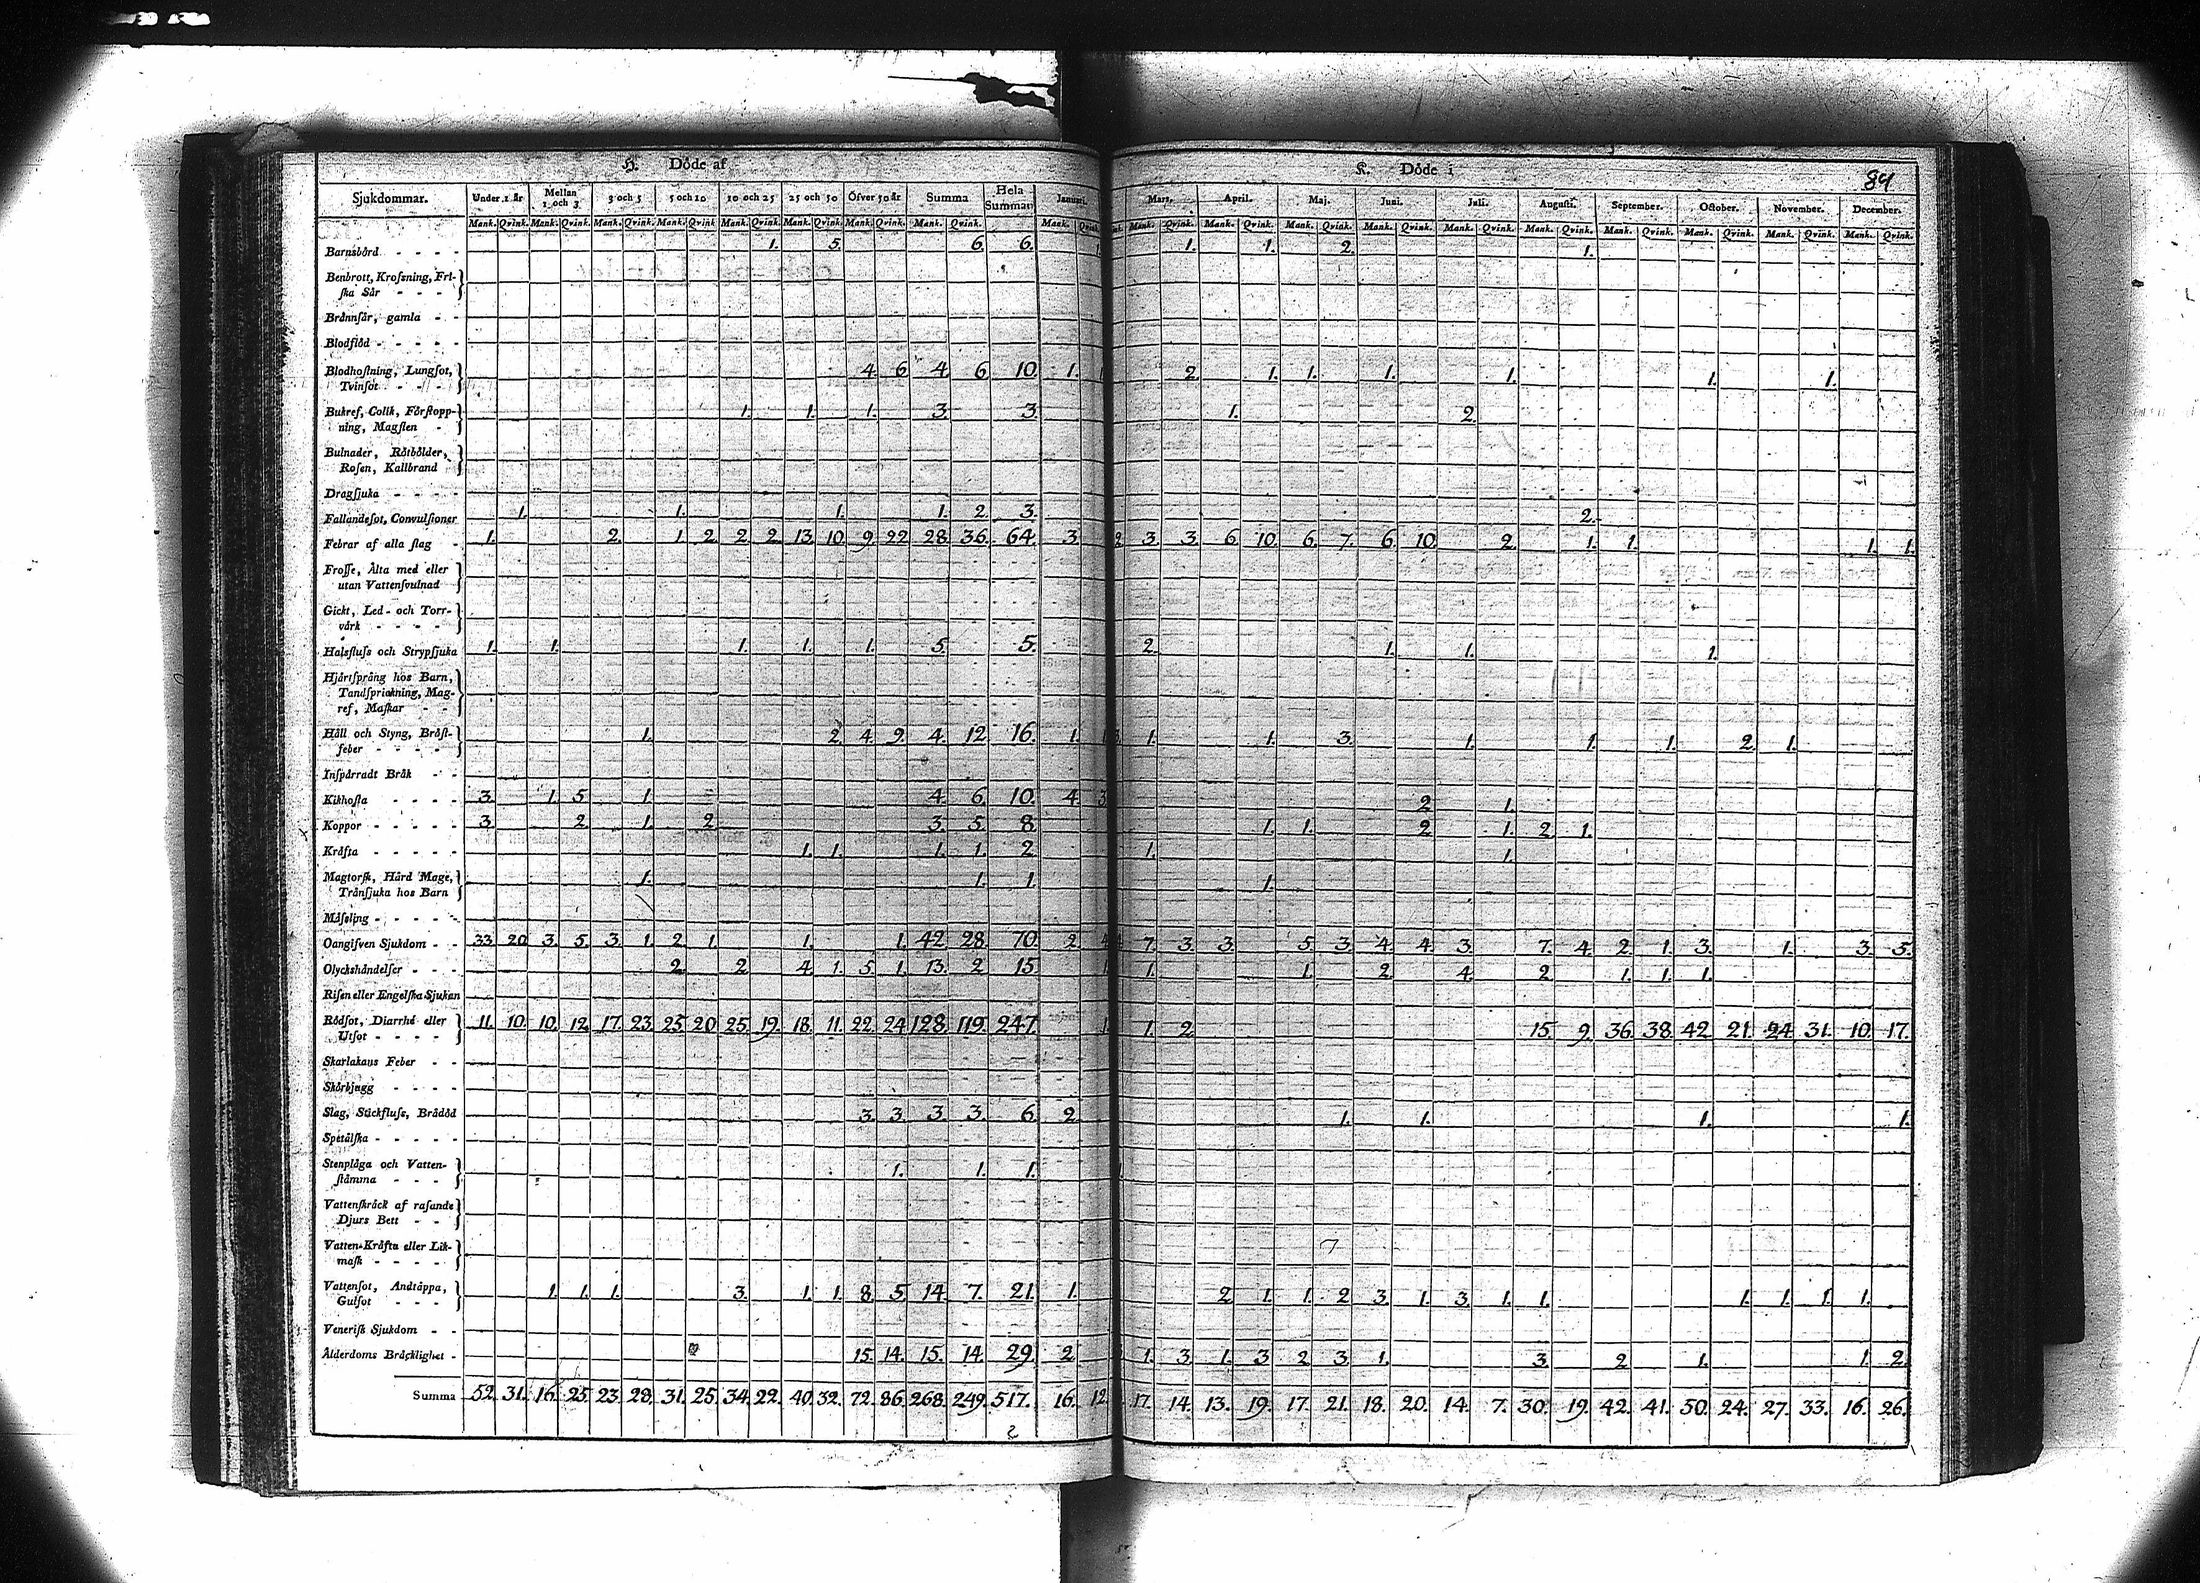 H. Döde af
K. Döde i
84
Sjukdommar. Under 1 år Mellan 1 och 3. 3 och 5 5 och 10 10 och 25 25 och 50 Öfver 50 år Summa Hela Summan Januari. Mars. April. Maj. Juni. Juli. Augusti. September. October. November. December.
Mank. Qvink. Mank. Qvink. Mank. Qvink. Mank. Qvink. Mank. Qvink. Mank. Qvink. Mank. Qvink. Mank. Qvink. Mank. Mank. Qvink. Mank. Qvink. Mank. Qvink. Mank. Qvink. Mank. Qvink. Mank. Qvink. Mank. Qvink. Mank. Qvink. Mank. Qvink. Mank. Qvink.
Barnsbörd 1. 5. 6. 6. 1. 1. 2. 1.
Benbrott, Krosning, Fri-
ska Sår
Brännsår, gamla
Blodflöd
Blodhostning, Lungsot,
Tvinsot 4. 6 4. 6 10. 1. 2. 1. 1. 1. 1. 1. 1.
Bukref, Colik, Förstopp-
ning, Magsten 1. 1. 1. 3. 3. 1. 2.
Bulnader, Rötbölder,
Rosen, Kallbrand
Dragsjuka
Fallandesot, Convulsioner 1. 1. 1. 1. 2. 3. 2.
Febrar af alla slag 1. 2. 1. 2. 2. 2. 13. 10. 9. 22. 28. 36. 64. 3. 2 3. 3. 6. 10. 6. 7. 6. 10. 2. 1. 1. 1. 1.
Frosse, Älta med eller
utan Vattensvulnad
Gickt, Led- och Torr-
värk
Halsfluss och Strypsjuka 1. 1. 1. 1. 1. 5. 5. 2. 1. 1. 1.
Hjärtsprång hos Barn,
Tandsprickning, Mag-
ref, Maskar
Håll och Styng, Bröst-
feber 1. 2. 4. 9. 4. 12. 16. 1. 1. 1. 3. 1. 1. 1. 2. 1.
Inspärradt Bråk
Kikhosta 3. 1. 5. 1. 4. 6. 10. 4. 3 2. 1.
Koppor 3. 2. 1. 2. 3. 5. 8. 1. 1. 2. 1. 2. 1.
Kräfta 1. 1. 1. 1. 2. 1. 1.
Magtorsk, Hård Mage,
Trånsjuka hos Barn 1. 1. 1. 1.
Mäsling
Oangifven Sjukdom 33. 20. 3. 5. 3. 1. 2. 1. 1. 1. 42. 28. 70. 2. 4 7. 3. 3. 5. 3. 4. 4. 3. 7. 4. 2. 1. 3. 1. 3. 5.
Olyckshändelser 2. 2. 4. 1. 5. 1. 13. 2. 15. 1. 1. 2. 4. 2. 1. 1. 1.
Risen eller Engelska Sjukan
Rödsot, Diarrhé eller
Utsot 11. 10. 10. 12. 17. 23. 25. 20. 25. 19. 18. 11. 22. 24. 128. 119. 247. 1. 1. 2. 15. 9. 36. 38. 42. 21. 24. 31. 10. 17.
Skarlakans Feber
Skörbjugg
Slag, Stickfluss, Brådöd 3. 3. 3. 3. 6. 2. 1. 1. 1. 1.
Spetälska
Stenplåga och Vatten-
stämma 1. 1. 1.
Vattenskräck af rasande
Djurs Bett
Vatten-Kräfta eller Lik-
mask
Vattensot, Andtäppa,
Gulsot 1. 1. 1. 3. 1. 1. 8. 5. 14. 7. 21. 1. 2. 1. 1. 2. 3. 1. 3. 1. 1. 1. 1. 1. 1.
Venerisk Sjukdom
Ålderdoms Bräcklighet 15. 14. 15. 14. 29. 2. 1. 3. 1. 3. 2. 3. 1. 3. 2. 1. 1. 2.
Summa 52. 31. 16. 25. 23. 28. 31. 25. 34. 22. 40. 32. 72. 86. 268. 249. 517. 16. 12. 17. 14. 13. 19. 17. 21. 18. 20. 14. 7. 30. 19. 42. 41. 50. 24. 27. 33. 16. 26.